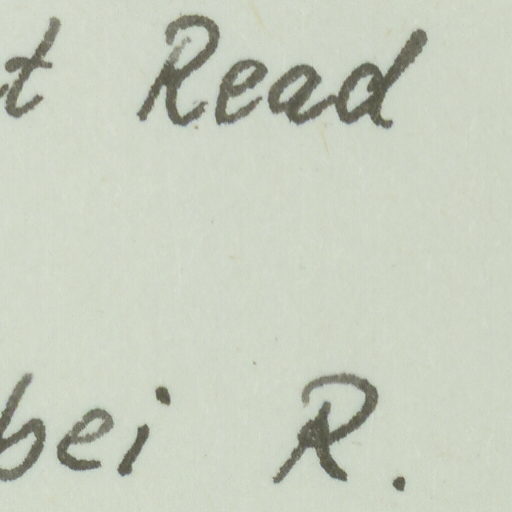 t Read
bei R.